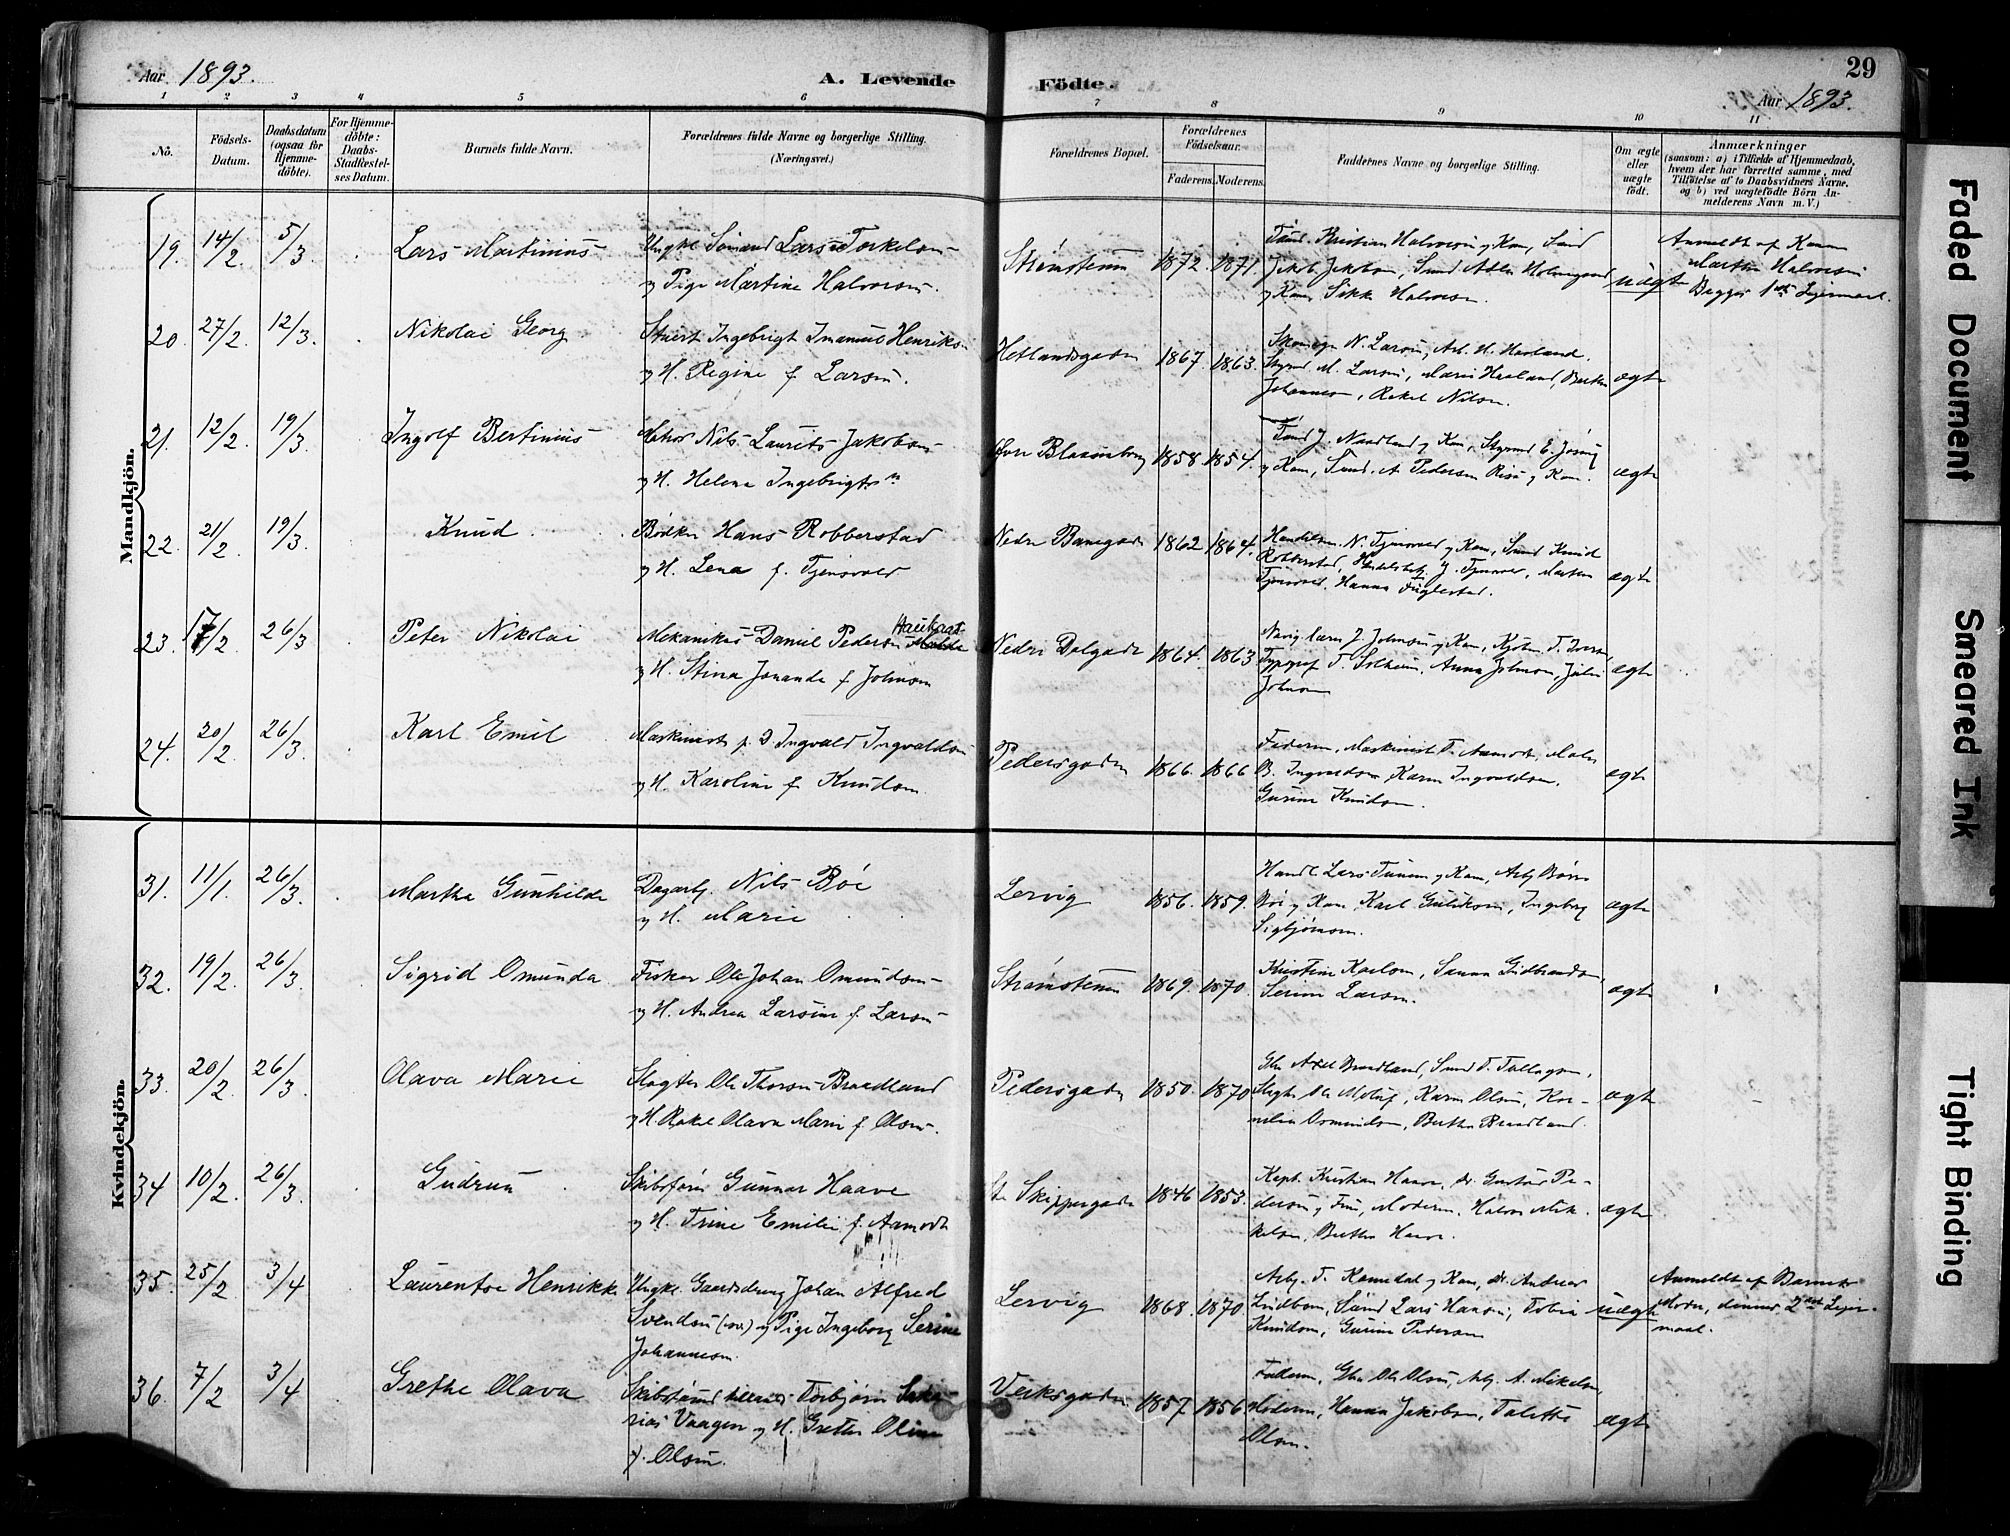 Aar 1893.
A. Levende
Födte.
Aar 1893.
29
1 2 3 4 5 6 7 8 9 10 11
No.
Födsels-
Datum.
Daabsdatum
(ogsaa for
Hjemme-
döbte).
For Hjemme-
döbte:
Daabs-
Stadfæstel-
ses Datum.
Barnets fulde Navn.
Forældrenes fulde Navne og borgerlige Stilling.
(Næringsvei.)
Forældrenes Bopæl.
Forældrenes
Födselsaar.
Faderens. Moderens.
Faddernes Navne og borgerlige Stilling.
Om ægte
eller
uægte
født.
Anmærkninger
(saasom: a) i Tilfælde af Hjemmedaab,
hvem der har forrettet samme, med
Tilföielse af to Daabsvidners Navne.
og b) ved uægtefödte Börn An-
melderens Navn m. V.)
Mandkjön.
19. 14/2 5/3 Lars Martinius
Ungk. Sömand Lars Torkelsen
og Pige Martine Halvorsen.
Strømstenen 1872. 1871.
Jakob Jakobsen,
uægte
Anmeldt af Konen
Marthe Halvorsen
Begges 1ste Leiermaal.
20. 27/2 12/3. Nikolai Georg
Stuert Ingebrigt Imanuel Henriks.
og H. Regine f. Larsen.
Hetlandsgaden 1867. 1863.
N. Larsen, Arb. H. Haaland.
Styrmd M. Larsen, Marie Haaland,
Johannesen, Rakel Nilsen.
ægte
21. 12/2. 19/3. Ingolf Bertinius
Nils Laurits Jakobsen
og H. Helena Ingebrigts
Øvre Blaasenborg 1858. 1854.
og Kone, Sømd. A. Pedersen Risø og Kone.
ægte
22. 21/2 19/3. Knud
Bødker Hans Robberstad
og H. Lena f. Tjensvold.
Nedre Banegade 1862 1864.
N. Tjensvold og Kone, Sømd Knud
Robberstad, J. Tjensvold, Marthe
Tjensvold, Hanna Fuglestad.
ægte
23. 17/2 26/3 Peter Nikolai
Haukaas
Mekanikus Daniel Pedersen
og H. Stina Jonanda f. Johnsen
Nedre Dalgade 1864. 1863
Navig. lærer J. Johnsen og Kone,
Typograf T. Solheim, Anna Johnsen,
Johnsen
ægte
24. 20/2. 26/3. Karl Emil
Maskinist p. D. Ingvald Ingvaldsen
og H. Karoline f. Knudsen
Pedersgaden 1866. 1866
Faderen, Maskinist T. Aamodt,
B. Ingvaldsen, Karen Ingvaldsen,
Gurine Knudsen.
ægte
Kvindekjön.
31. 11/1. 26/3. Marthe Gunhilde
Dagarbj. Nils Bøe
og H. Marie
Lervig 1856. 1859.
Bøe og Kone, Karl Guliksen, Ingeborg
Sigbjørnsen.
ægte
32. 19/2. 26/3. Sigrid Omunda
Fisker Ole Johan Omundsen
og H. Andrea Larsine f. Larsen
Strømstenen 1869. 1870.
Kristine Karlsen, Sanna Gudbrandsen,
Serine Larsen.
ægte
33. 20/2. 26/3. Olava Marie
Slagter Ole Thorsen Braadland
og H. Rakel Olava Marie f. Olsen.
Pedersgaden 1850. 1870
Axel Braadland, Sømd T. Tollagsen,
Karen Olsen, Kor-
nelia Osmundsen, Berthe Braadland.
ægte
34 10/2. 26/3. Gudrun
Skibsfører Gunnar Haave
og H. Trine Emilie f. Aamodt
St. Skippergade 1846 1853.
Kapt. Kristian Haave, do. Gustav Pe-
dersen og Frue, Moderen, Halvor Mik-
kelsen, Berthe Haave.
ægte
35. 25/2. 3/4 Laurentse Henrikke
Ungk. Gaardsdreng Johan Alfred
Svendsen (sv.) og Pige Ingeborg Serine
Johannesen.
Lervig 1868. 1870.
Arbj. T. Ramsdal og Kone, do. Andreas
Lindbom, Sømd Lars Hansen, Tobia
Knudsen, Gurine Pedersen
uægte
Anmeldt af Barnets
Moder, dennes 2det Leier-
maal.
36. 7/2 3/4 Grethe Olava
Skibstømmermand Torbjørn Saka-
rias Vaagen og H. Grethe Oline
f. Olsen.
Verksgaden 1857. 1856
Faderen, Ole Olsen, Arbj. A. Mikelsen,
Moderen, Hanna Jakobsen, Talette
Olsen.
ægte
Faded Document
Smeared Ink
Tight Binding